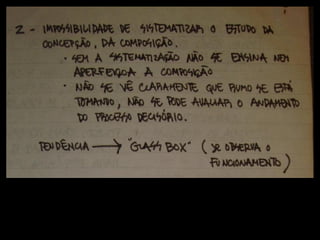 2 - IMPOSSIBILIDADE DE SISTEMATIZAR O ESTUDO DA
CONCEPÇÃO, DA COMPOSIÇÃO.
· SEM A SISTEMATIZAÇÃO NÃO SE ENSINA NEM
APERFEIÇOA A COMPOSIÇÃO
· NÃO SE VÊ CLARAMENTE QUE RUMO SE ESTÁ
TOMANDO, NÃO SE PODE AVALIAR O ANDAMENTO
DO PROCESSO DECISÓRIO.
TENDÊNCIA → "GLASS BOX" (SE OBSERVA O
FUNCIONAMENTO)